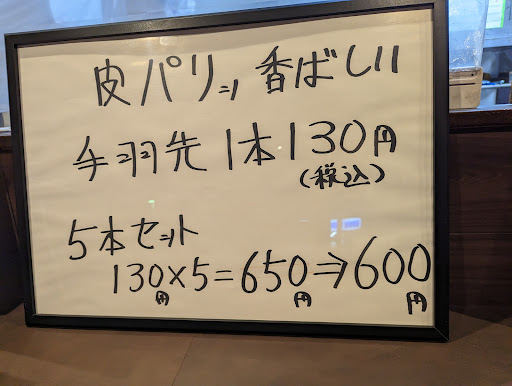 皮パリッ香ばしい
手羽先1本130円
(税込)
5本セット
130円×5=650円⇒600円